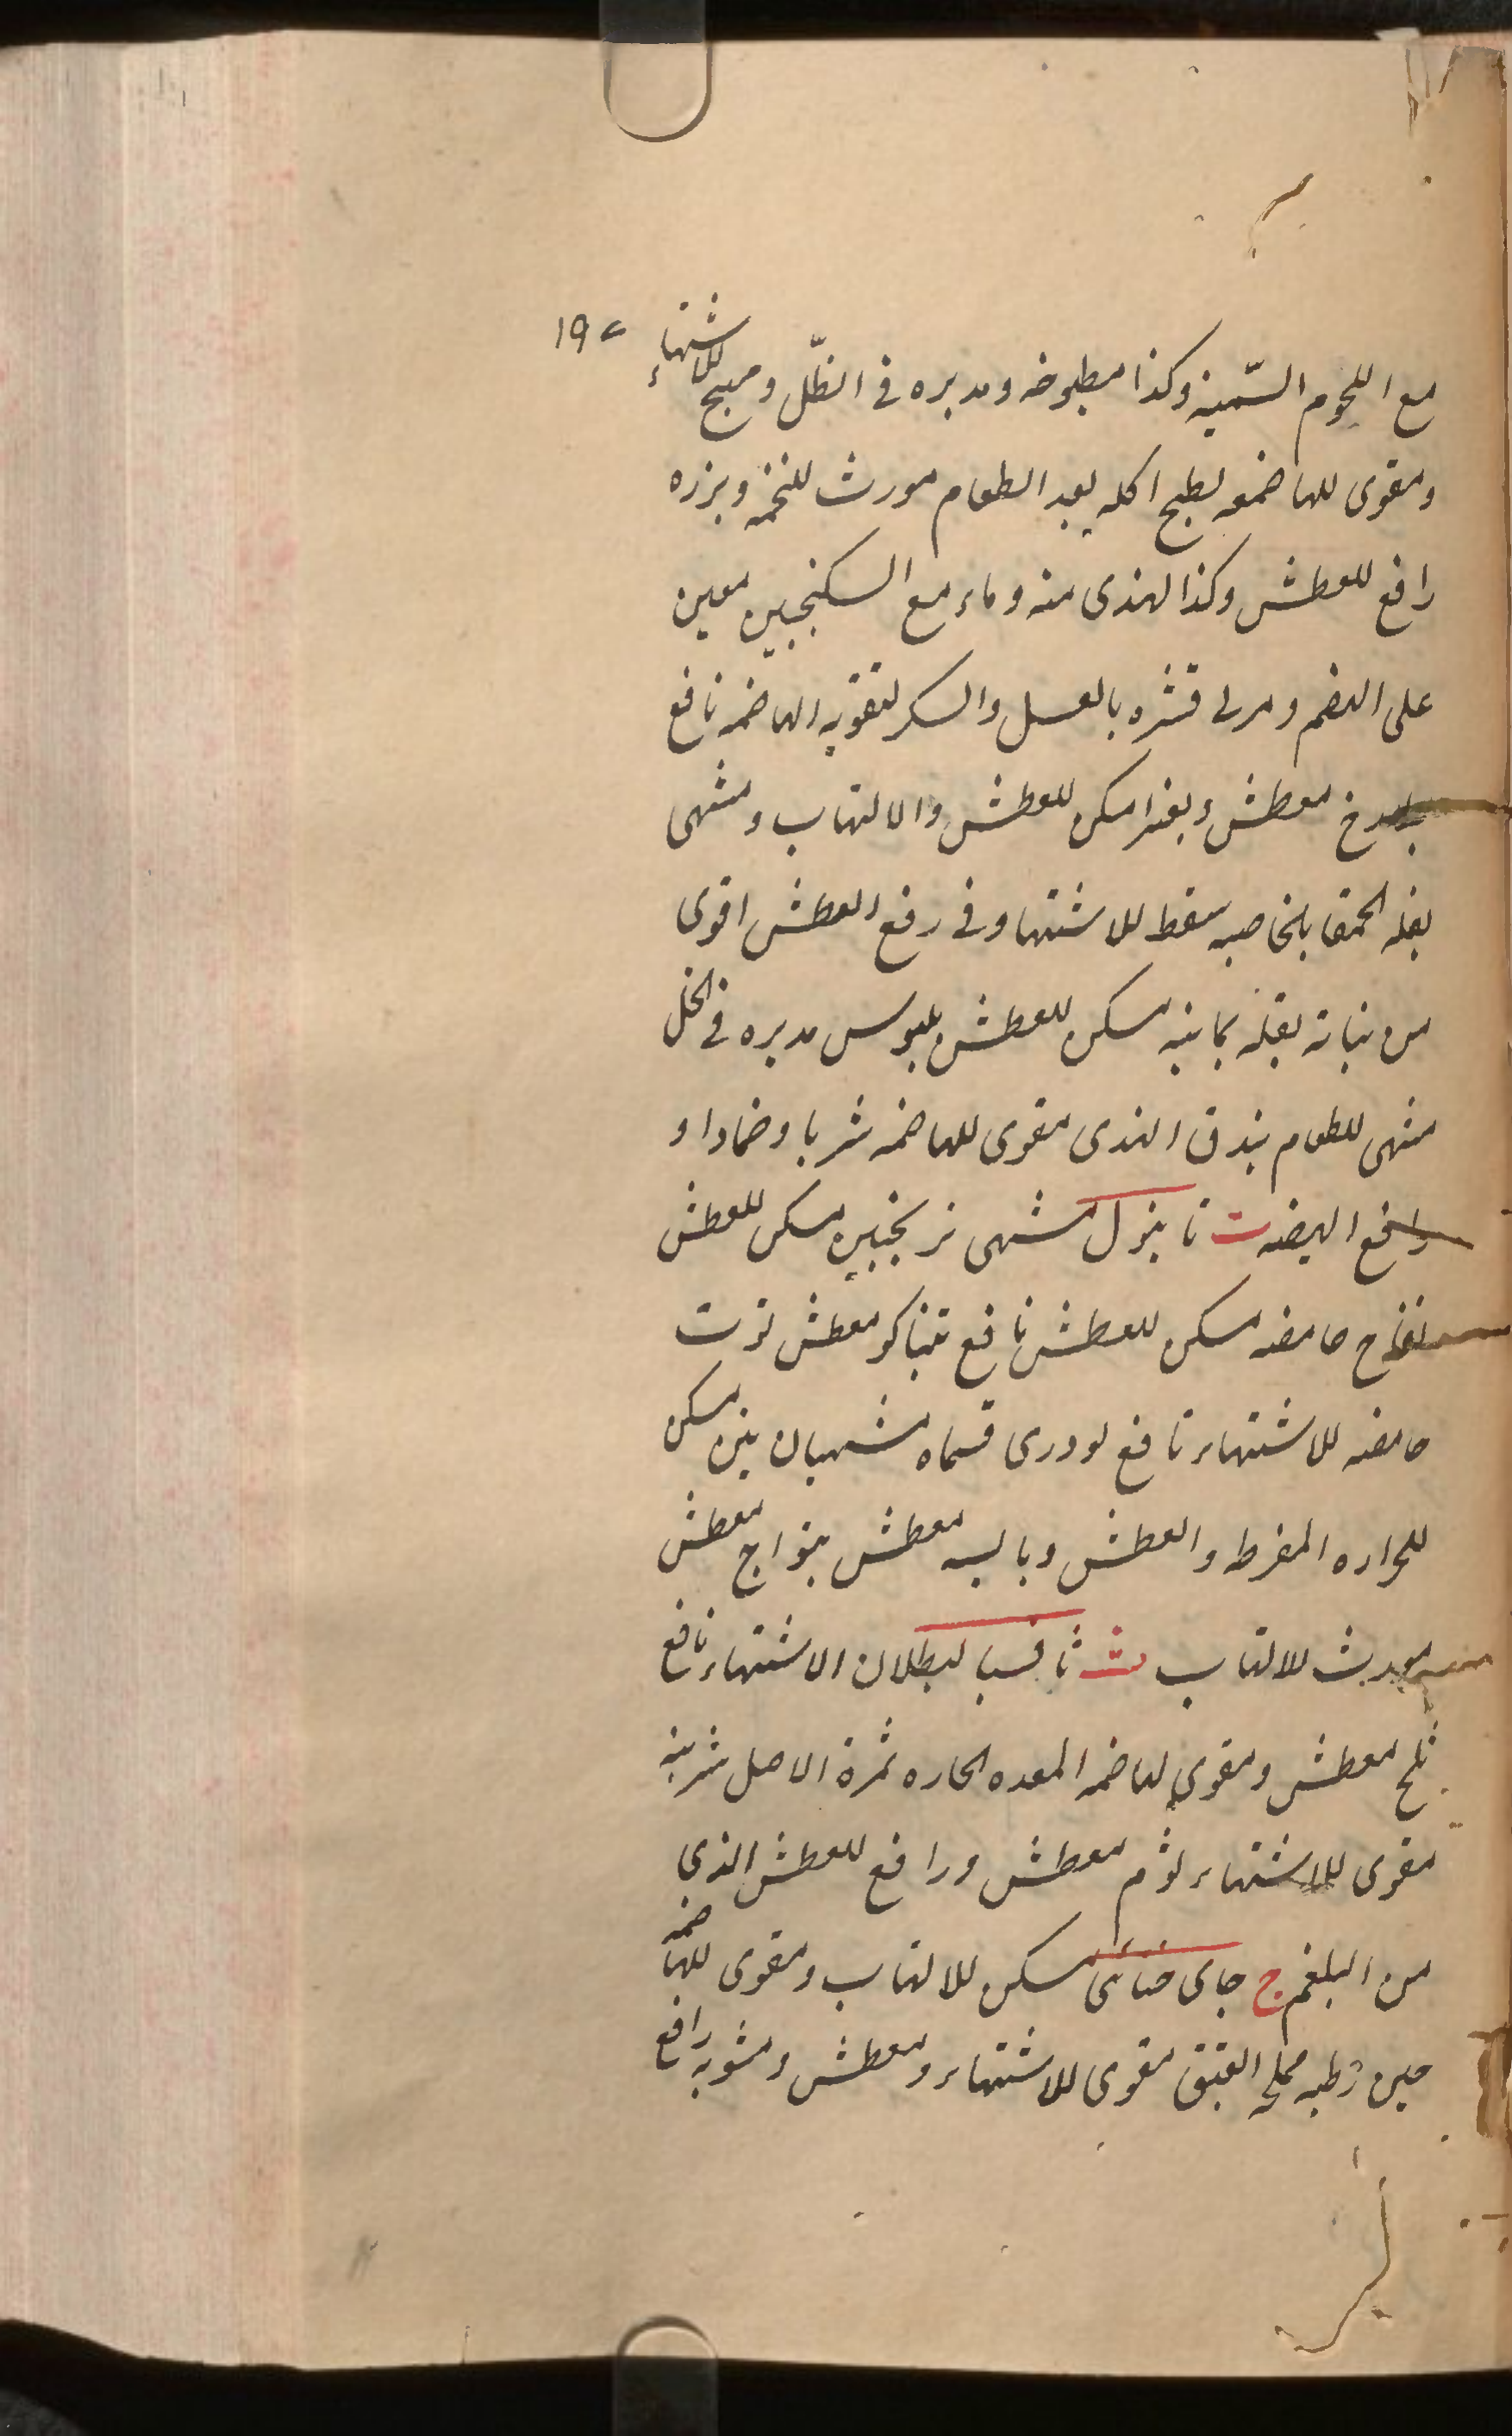 ١٩٤
مع اللحوم السّمينه وكذا مطبوخه ومدبره فى الظّل ومهيج للاشتهاء
ومقوى للهاضمه بطيخ اكله بعد الطعام مورث للتخمه وبزره
رافع للعطش وكذا الهندى منه وماء مع السكنجبين معين
على الهضم ومربى قشره بالعسل والسكر لتقويه الهاضمه نافع
معطش وبغدا مسكن للعطش والالتهاب ومشهى
بقله الحمقا بالخاصيه مسقط للاشتها وفى رفع العطش اقوى
من نباته بقله يمانيه مسكن للعطش بلبوس مدبره فى الخل
مشهى للطعام بندق الهندى مقوى للهاضمه شربا وضمادا و
رافع الهيضه ت تانبول مشهى ترنجبين مسكن للعطش
تفاح حامضه مسكن للعطش نافع تنباكو معطش توت
حامضه للاشتهاء نافع تودرى قسماه مشهيان تين مسكن
للحراره المفرطه والعطش ويابسه معطش معطش
مورث للالتهاب ث ثافسيا لبطلان الاشتهاء نافع
ثلج معطش ومقوى لهاضمه المعده الحاره ثمرة الاصل شربينه
مقوى للاشتهاء ثوم معطش ورافع للعطش الذى
من البلغم ج جاى ختائى مسكن للالتهاب ومقوى للهاضمه
جبن رطبه مملح العتيق مقوى للاشتهاء ومعطش ومشويه رافع